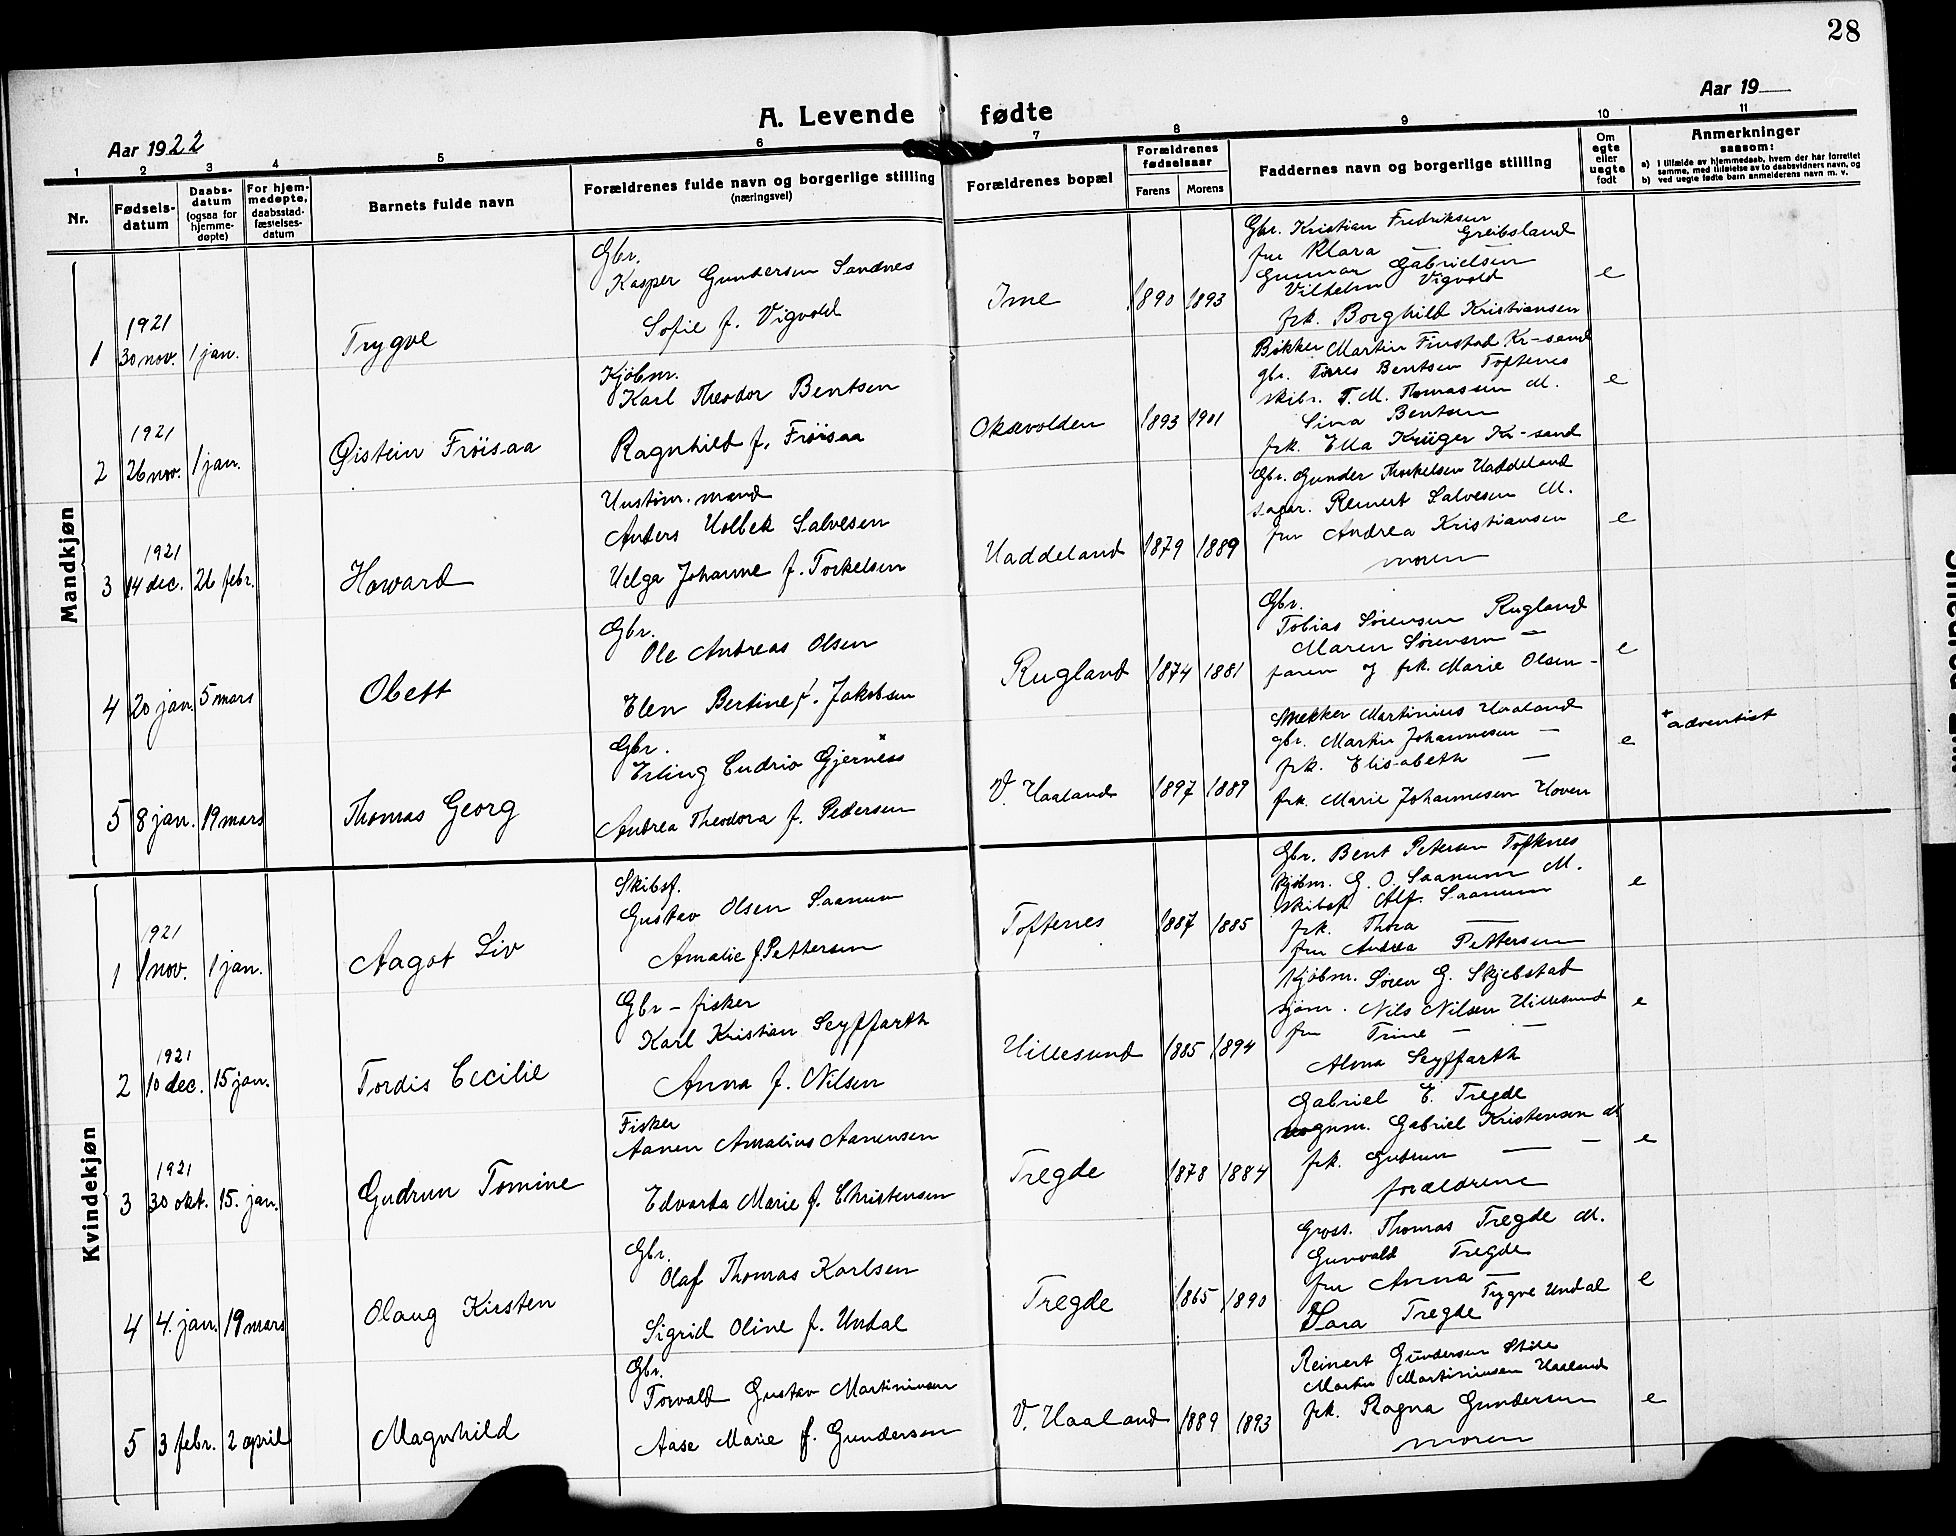 28
Aar 1922
A. Levende fødte
Aar 19
1 2 3 4 5 6 7 8 9 10 11
Nr.
Fødsels-
datum
Daabs-
datum
(ogsaa for
hjemme-
døpte)
For hjem-
medøpte,
daabsstad-
fæstelses-
datum
Barnets fulde navn
Forældrenes fulde navn og borgerlige stilling
(næringsvei)
Forældrenes bopæl
Forældrenes
fødselsaar
Farens Morens
Faddernes navn og borgerlige stilling
Om
egte
eller
uegte
født
Anmerkninger
saasom:
a) I tilfælde av hjemmedaab, hvem der har forrettet
samme, med tilføielse av to daabsvidners navn, og
b) ved uegte fødte barn anmelderens navn m. v.
Mandkjøn
1
1921
30 nov.
1 jan.
Trygve
Gbr.
Kasper Gundersen Sandnes
Sofie f. Vigvold
Ime
1890 1893
Gbr. Kristian Fredriksen
Greibsland
fru Klara —
Gunnar Gabrielsen
Vilhelm Vigvold
frk. Borghild Kristiansen
e
2
1921
26 nov.
1 jan.
Øistein Frøisaa
Kjøbm.
Karl Theodor Bentsen
Ragnhild f. Frøisaa
Oksevolden
1893 1901
Bøkker Martin Finstad Kr-sand
gbr. Tarres Bentsen Toftenes
skibr. T. M. Thomassen M.
Sina Bentsen
frk. Ella Krüger Kr-sand
e
3
1921
14 dec.
26 febr.
Howard
Hustøm. mand
Anders Holbek Salvesen
Helga Johanne f. Torkelsen
Haddeland
1879 1889
Gbr. Gunder Thorkelsen Haddeland
sagar. Reinert Salvesen M.
fru Andrea Kristiansen
moren
e
4
20 jan.
5 mars
Obett
Gbr.
Ole Andreas Olsen
Elen Bertine f. Jakobsen
Rugland
1874 1881
Gbr.
Tobias Sørensen Rugland
Maren Sørensen —
faren & frk. Marie Olsen -
e
5
8 jan.
19 mars
Thomas Georg
Gbr.
Erling Endrio Gjerness *
Andrea Theodora f. Pedersen
V. Haaland
1897 1889
Snekker Martinius Haaland
gbr. Martin Johannesen —
frk. Elisabeth —
frk. Marie Johannesen Hoven
e
* adventist
Kvindekjøn
1
1921
1 nov.
1 jan.
Aagot Liv
Skibsf.
Gustav Olsen Saanum
Amalie f. Pettersen
Toftenes
1887 1885
Gbr. Bent Petersen Toftenes
kjøbm. G. O. Saanum M.
skibsf. Alf. Saanum
frk. Thora —
fru Andrea Pettersen
e
2
1921
10 dec.
15 jan.
Tordis Cecilie
Gbr - fisker
Karl Kristian Seyffarth
Anna f. Nilsen
Hillesund
1885 1894
Kjøbm. Søren G. Skjebstad
sjøm. Nils Nilsen Hillesund
fru Trine — —
Alma Seyffarth
e
3
1921
30 okt.
15. jan.
Gudrun Tomine
Fisker
Aanen Amalius Aanensen
Edvarda Marie f. Christensen
Tregde
1878 1884
Gabriel E. Tregde
vognm. Gabriel Kristensen M
frk. Gudrun — —
forældrene
e
4
4. jan.
19 mars
Olaug Kirsten
Gbr.
Olaf Thomas Karlsen
Sigrid Oline f. Undal
Tregde
1865 1890
Gross. Thomas Tregde M.
Gunvald Tregde
fru Anna —
Sara Tregde Trygve Undal
e
5
3 febr.
2 april
Magnhild
Gbr.
Torvald Gustav Martiniusen
Aase Marie f. Gundersen
V. Haaland
1889 1893
Reinert Gundersen Stile
Martin Martiniusen Haaland
frk. Ragna Gundersen
moren
e